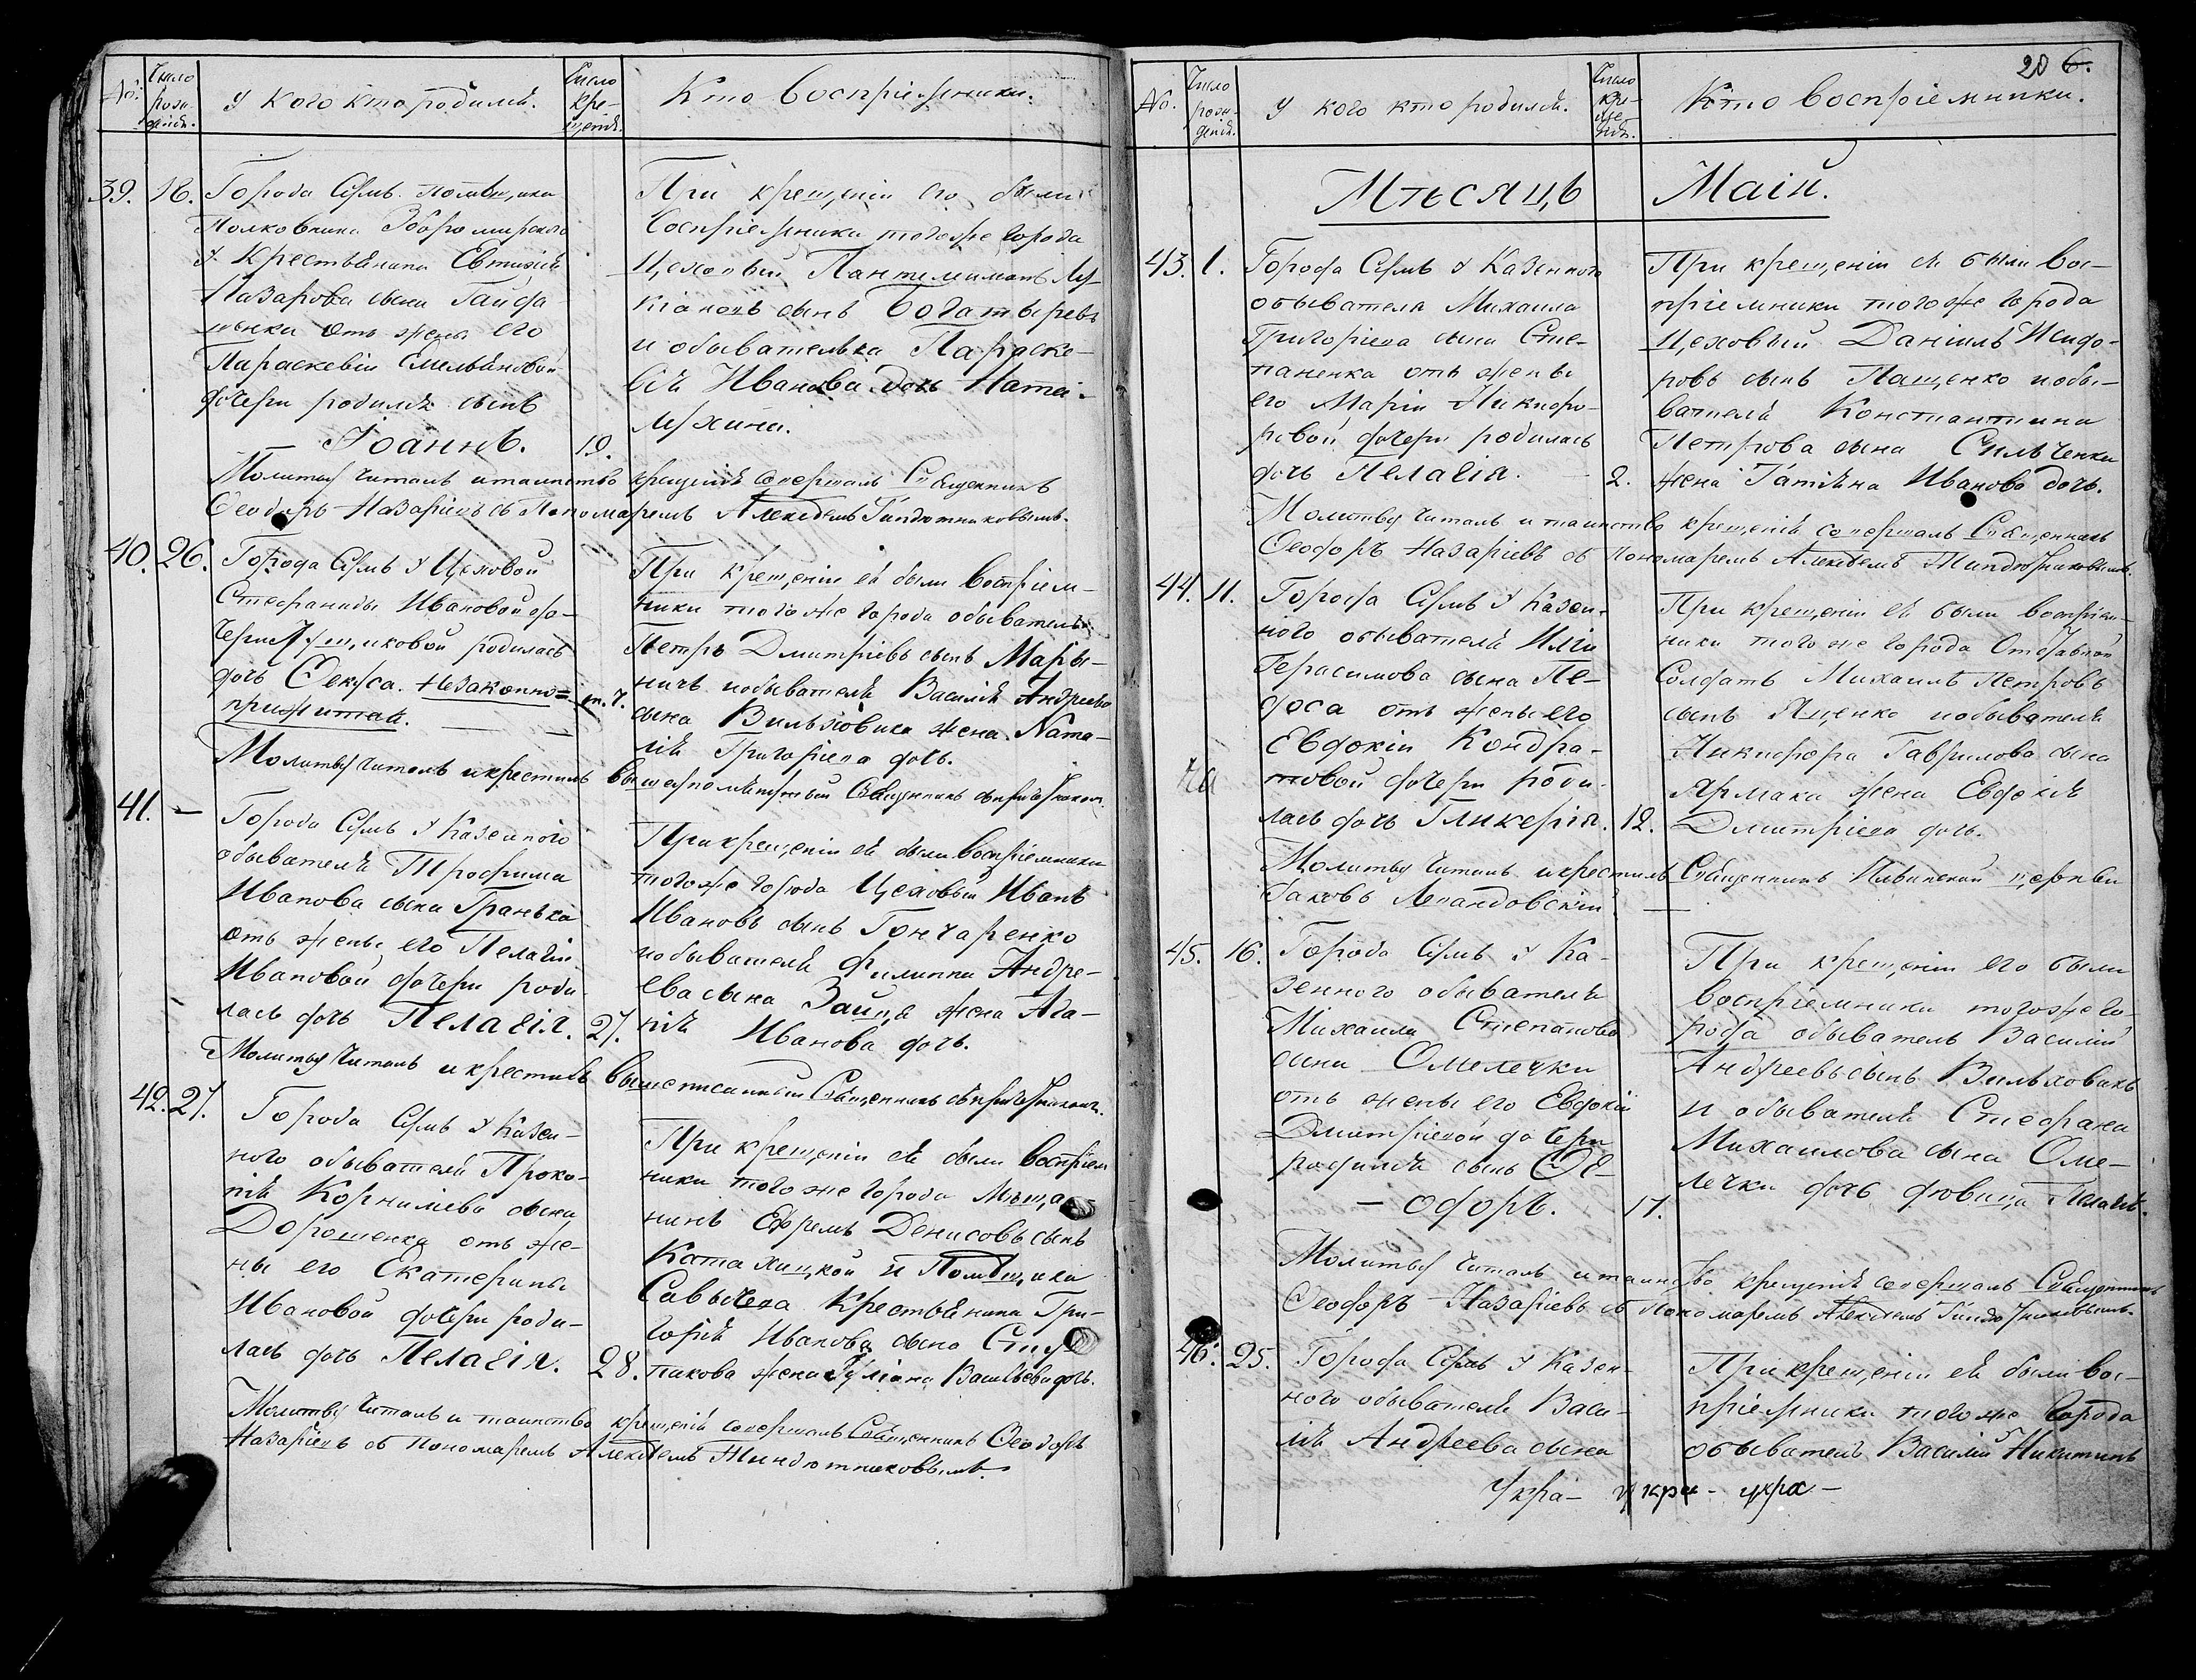 №. Число рожденiя. У кого кто родился. Число крещенiя. Кто воспрiемники.
39. 18. Города Сумъ помѣщика
Полковника
у Крестьянина Евтихiя
Назарова сына
отъ жены его
Параскевiи Емельяновой
дочери родился сынъ
— Iоаннъ. 19.
При крещенiи его были
воспрiемники того же города
Цеховый Пантелимонъ Лу-
кiановъ сынъ Богатыревъ
и обывателька Параске-
вiя Иванова дочь
Молитву читалъ и таинство крещенiя совершалъ Священникъ
Ѳеодоръ Назарiевъ съ Пономаремъ Алексѣемъ
40. 26. Города Сумъ у Цеховой
Стефаниды Ивановой до-
чери родилась
дочь Ѳекла. незаконно=
прижитая. 27.
При крещенiи ея были воспрiем-
ники того же города обыватель
Петръ Дмитрiевъ сынъ Мары-
ничъ и обывателя Василiя Андреева
сына Вильховика жена Ната-
лiя Григорiева дочь.
Молитву читалъ и крестилъ вышеупомянутый Священникъ съ причетникомъ.
41. — Города Сумъ у Казенного
обывателя Трофима
Иванова сына Гранька
отъ жены его Пелагiи
Ивановой дочери роди-
лась дочь Пелагiя. 27.
При крещенiи ея были воспрiемники
того же города Цеховый Иванъ
Ивановъ сынъ Гончаренко
и обывателя Филиппа Андре-
ева сына Зайца жена Ага-
пiя Иванова дочь.
Молитву читалъ и крестилъ вышеписанный Священникъ съ причетникомъ.
42. 27. Города Сумъ у Казен-
ного обывателя Проко-
пiя Корнилiева сына
Дорошенка отъ же-
ны его Екатерины
Ивановой дочери роди-
лась дочь Пелагiя. 28.
При крещенiи ея были воспрiем
ники того же города Мѣща-
нинъ Ефремъ Денисовъ сынъ
и Помѣщика
Савычева Крестьянина Гри-
горiя Иванова сына
жена Улiана Васильева дочь.
Молитву читалъ и таинство крещенiя совершалъ Священникъ Ѳеодоръ
Назарiевъ съ Пономаремъ Алексѣемъ
20 6.
№. Число рожденiя. У кого кто родился. Число крещенiя. Кто воспрiемники.
Мѣсяцъ Маiй.
43. 1. Города Сумъ у Казенного
обывателя Михаила
Григорiева сына Сте-
паненка отъ жены
его Марiи Никифо-
ровой дочери родилась
дочь Пелагiя. 2.
При крещенiи ея были вос-
прiемники того же города
Цеховый Данiилъ Исидо-
ровъ сынъ Пащенко и обы-
вателя Константина
Петрова сына Сильченки
жена Татiяна Иванова дочь.
Молитву читалъ и таинство крещенiя совершалъ Священникъ
Ѳеодоръ Назарiевъ съ Пономаремъ Алексѣемъ
44. 11. Города Сумъ у Казен-
ного обывателя Илiи
Герасимова сына Пе-
доса отъ жены его
Евдокiи Кондра-
товой дочери роди-
лась дочь Гликерiя. 12.
При крещенiи ея были воспрiем-
ники того же города Отставной
Солдатъ Михаилъ Петровъ
сынъ Яценко и обывателя
Никифора Гаврилова сына
Ярмака жена Евдокiя
Дмитрiева дочь.
Молитву читалъ и крестилъ Священникъ церкви
Iаковъ Левандовскiй.
45. 16. Города Сумъ у Ка-
зенного обывателя
Михаила Степанова
сына Омелечки
отъ жены его Евдокiи
Дмитрiевой дочери
родился сынъ Ѳе-
— одоръ. 17.
При крещенiи его были
воспрiемники того же го-
рода обыватель Василiй
Андреевъ сынъ Вильховикъ
и обывателя Стефана
Михаилова сына Оме-
лечки дочь дѣвица Пелагiя.
Молитву читалъ и таинство крещенiя совершалъ Священникъ
Ѳеодоръ Назарiевъ съ Пономаремъ Алексѣемъ
46. 25. Города Сумъ у Казен-
ного обывателя Васи-
лiя Андреева сына
При крещенiи ея были вос-
прiемники того же города
обыватель Василiй Никитинъ
Укра- укра- укра-